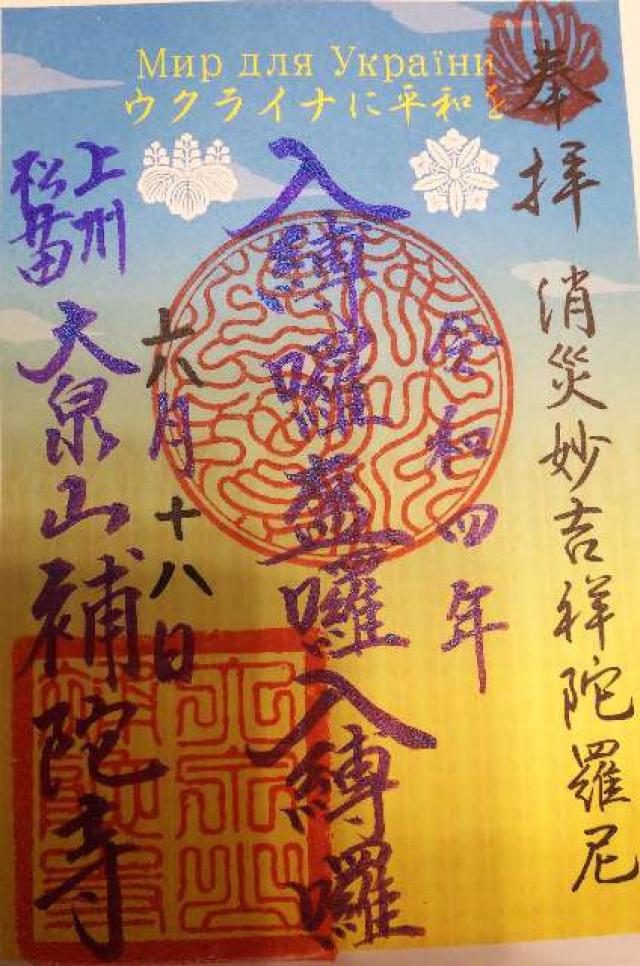 Мир для України
ウクライナに平和を
奉拝
消災妙吉祥陀羅尼
令和四年
入縛囉盋囉入縛囉
六月十八日
上州
松井田
大泉山補陀寺